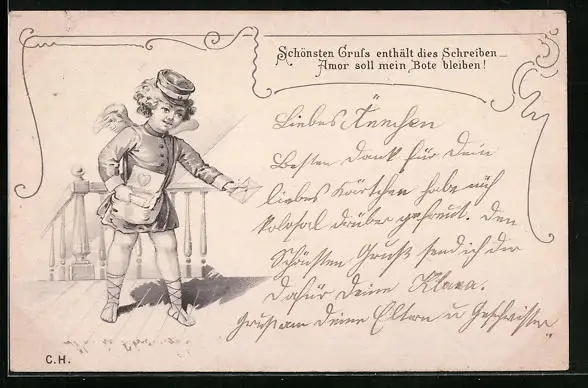 Schönsten Gruſs enthält dies Schreiben_
Amor soll mein Bote bleiben!
Liebes Ännchen
Besten Dank für Dein
liebes Kärtchen habe mich
kolosal darüber gefreut. Den
Schönsten Gruß send ich dir
dafür Deine Klara.
Gruß an Deine Eltern u Geschwister
C.H.